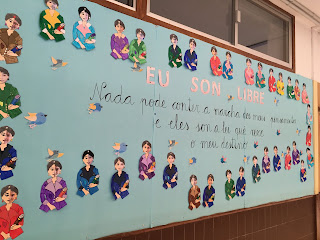 EU SON LIBRE
Nada pode conter a marcha dos meus pensamentos
e eles son a lei que rexe
o meu destino